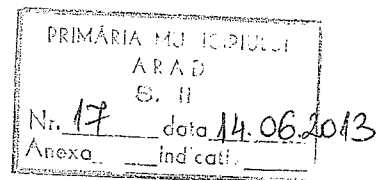 PRIMĂRIA MUNICIPIULUI
ARAD
S. II
Nr. 17 data 14.06.2013
Anexa indicati